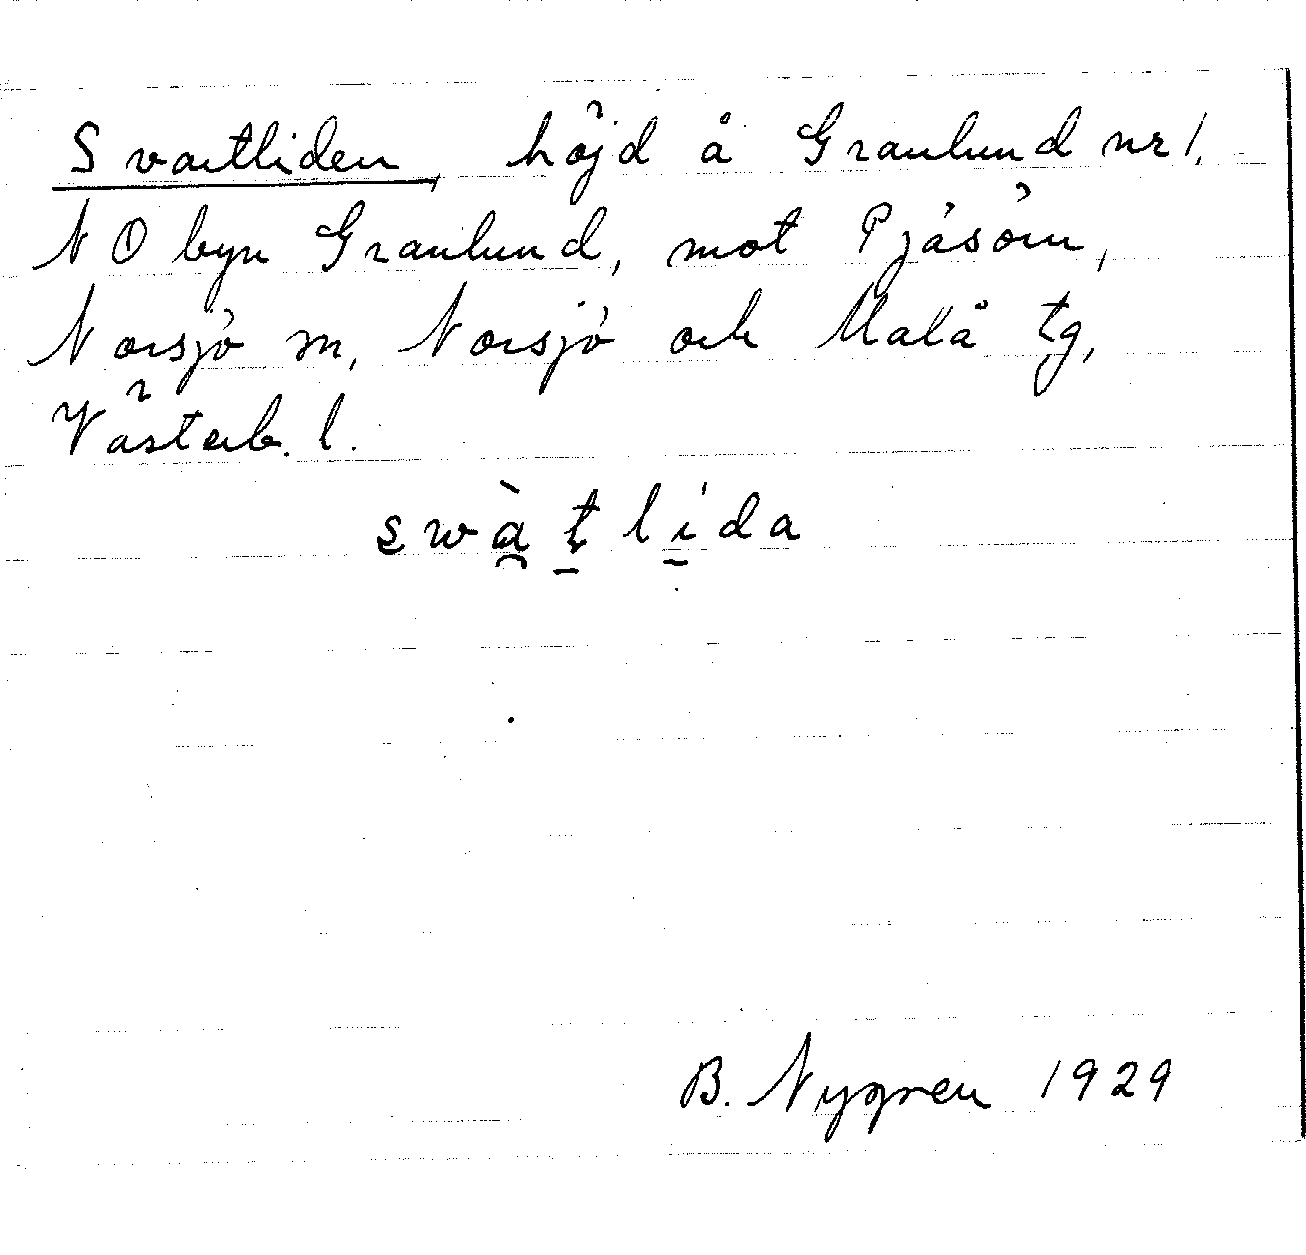 Svartliden, höjd å Granlund nr 1.
NO byn Granlund, mot Pjäsörn,
Norsjö sn, Norsjö och Malå tg,
Västerb. l.
swàt̠li̠da
B. Nygren 1929